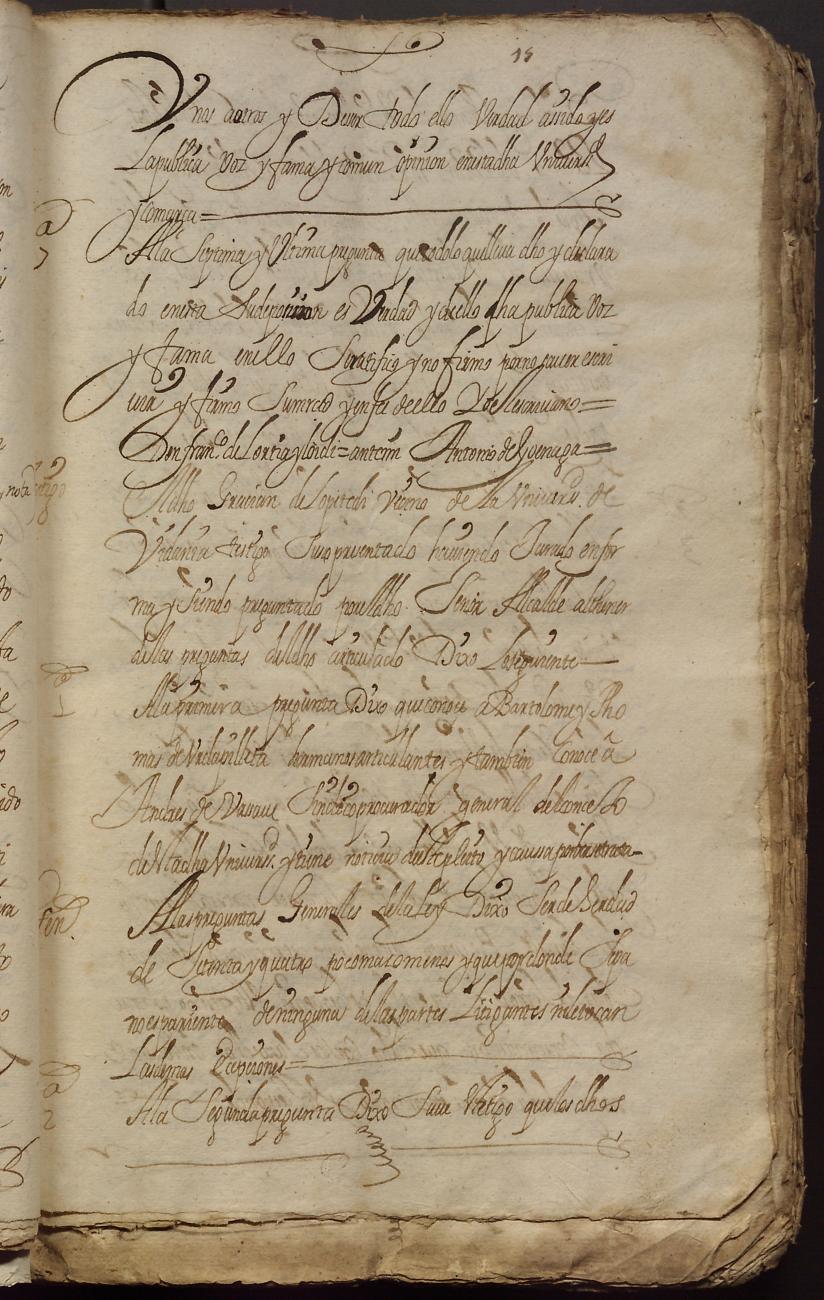 15
Unas a otras y Decir todo ello Verdad asido y es
La publica Voz y fama y comun opinion en esta dha Uniuersd
y comarca =
A la Septima y Ultima pregunta que todo lo que lleua dho y declara
do en esta Su deposicion es Verdad y de ello dha publica Voz
y fama en ello Se ratifico y no firmo por no sauer escri
uir y firmo Su mrd y en fe de ello Yo el escriuano =
Don franco. de = ante mi Antonio de =
Al dho Gracian de Vecino de la Uniuersd. de
Vidania testigo Suso presentado hauiendo Jurado en for
ma y Siendo preguntado por el dho Señor Alcalde al thenor
de las preguntas del dho articulado Dixo Lo siguiente
a
1
A la primera pregunta Dixo que conoce a Bartolome y Tho
mas de hermanos articulantes y tambien Conoce a
Andres de Sindico procurador general del concejo
de esta dha Uniuersd. y tiene noticia de este pleito y causa
A las preguntas Generales de la Ley Dixo Ser de hedad
de Setenta y quatro poco mas o menos y que
no es pariente de ninguna de las partes Litigantes ni le tocan
Las demas Excepciones =
a
2
A la Segunda pregunta Dixo Saue este testigo que los dhos